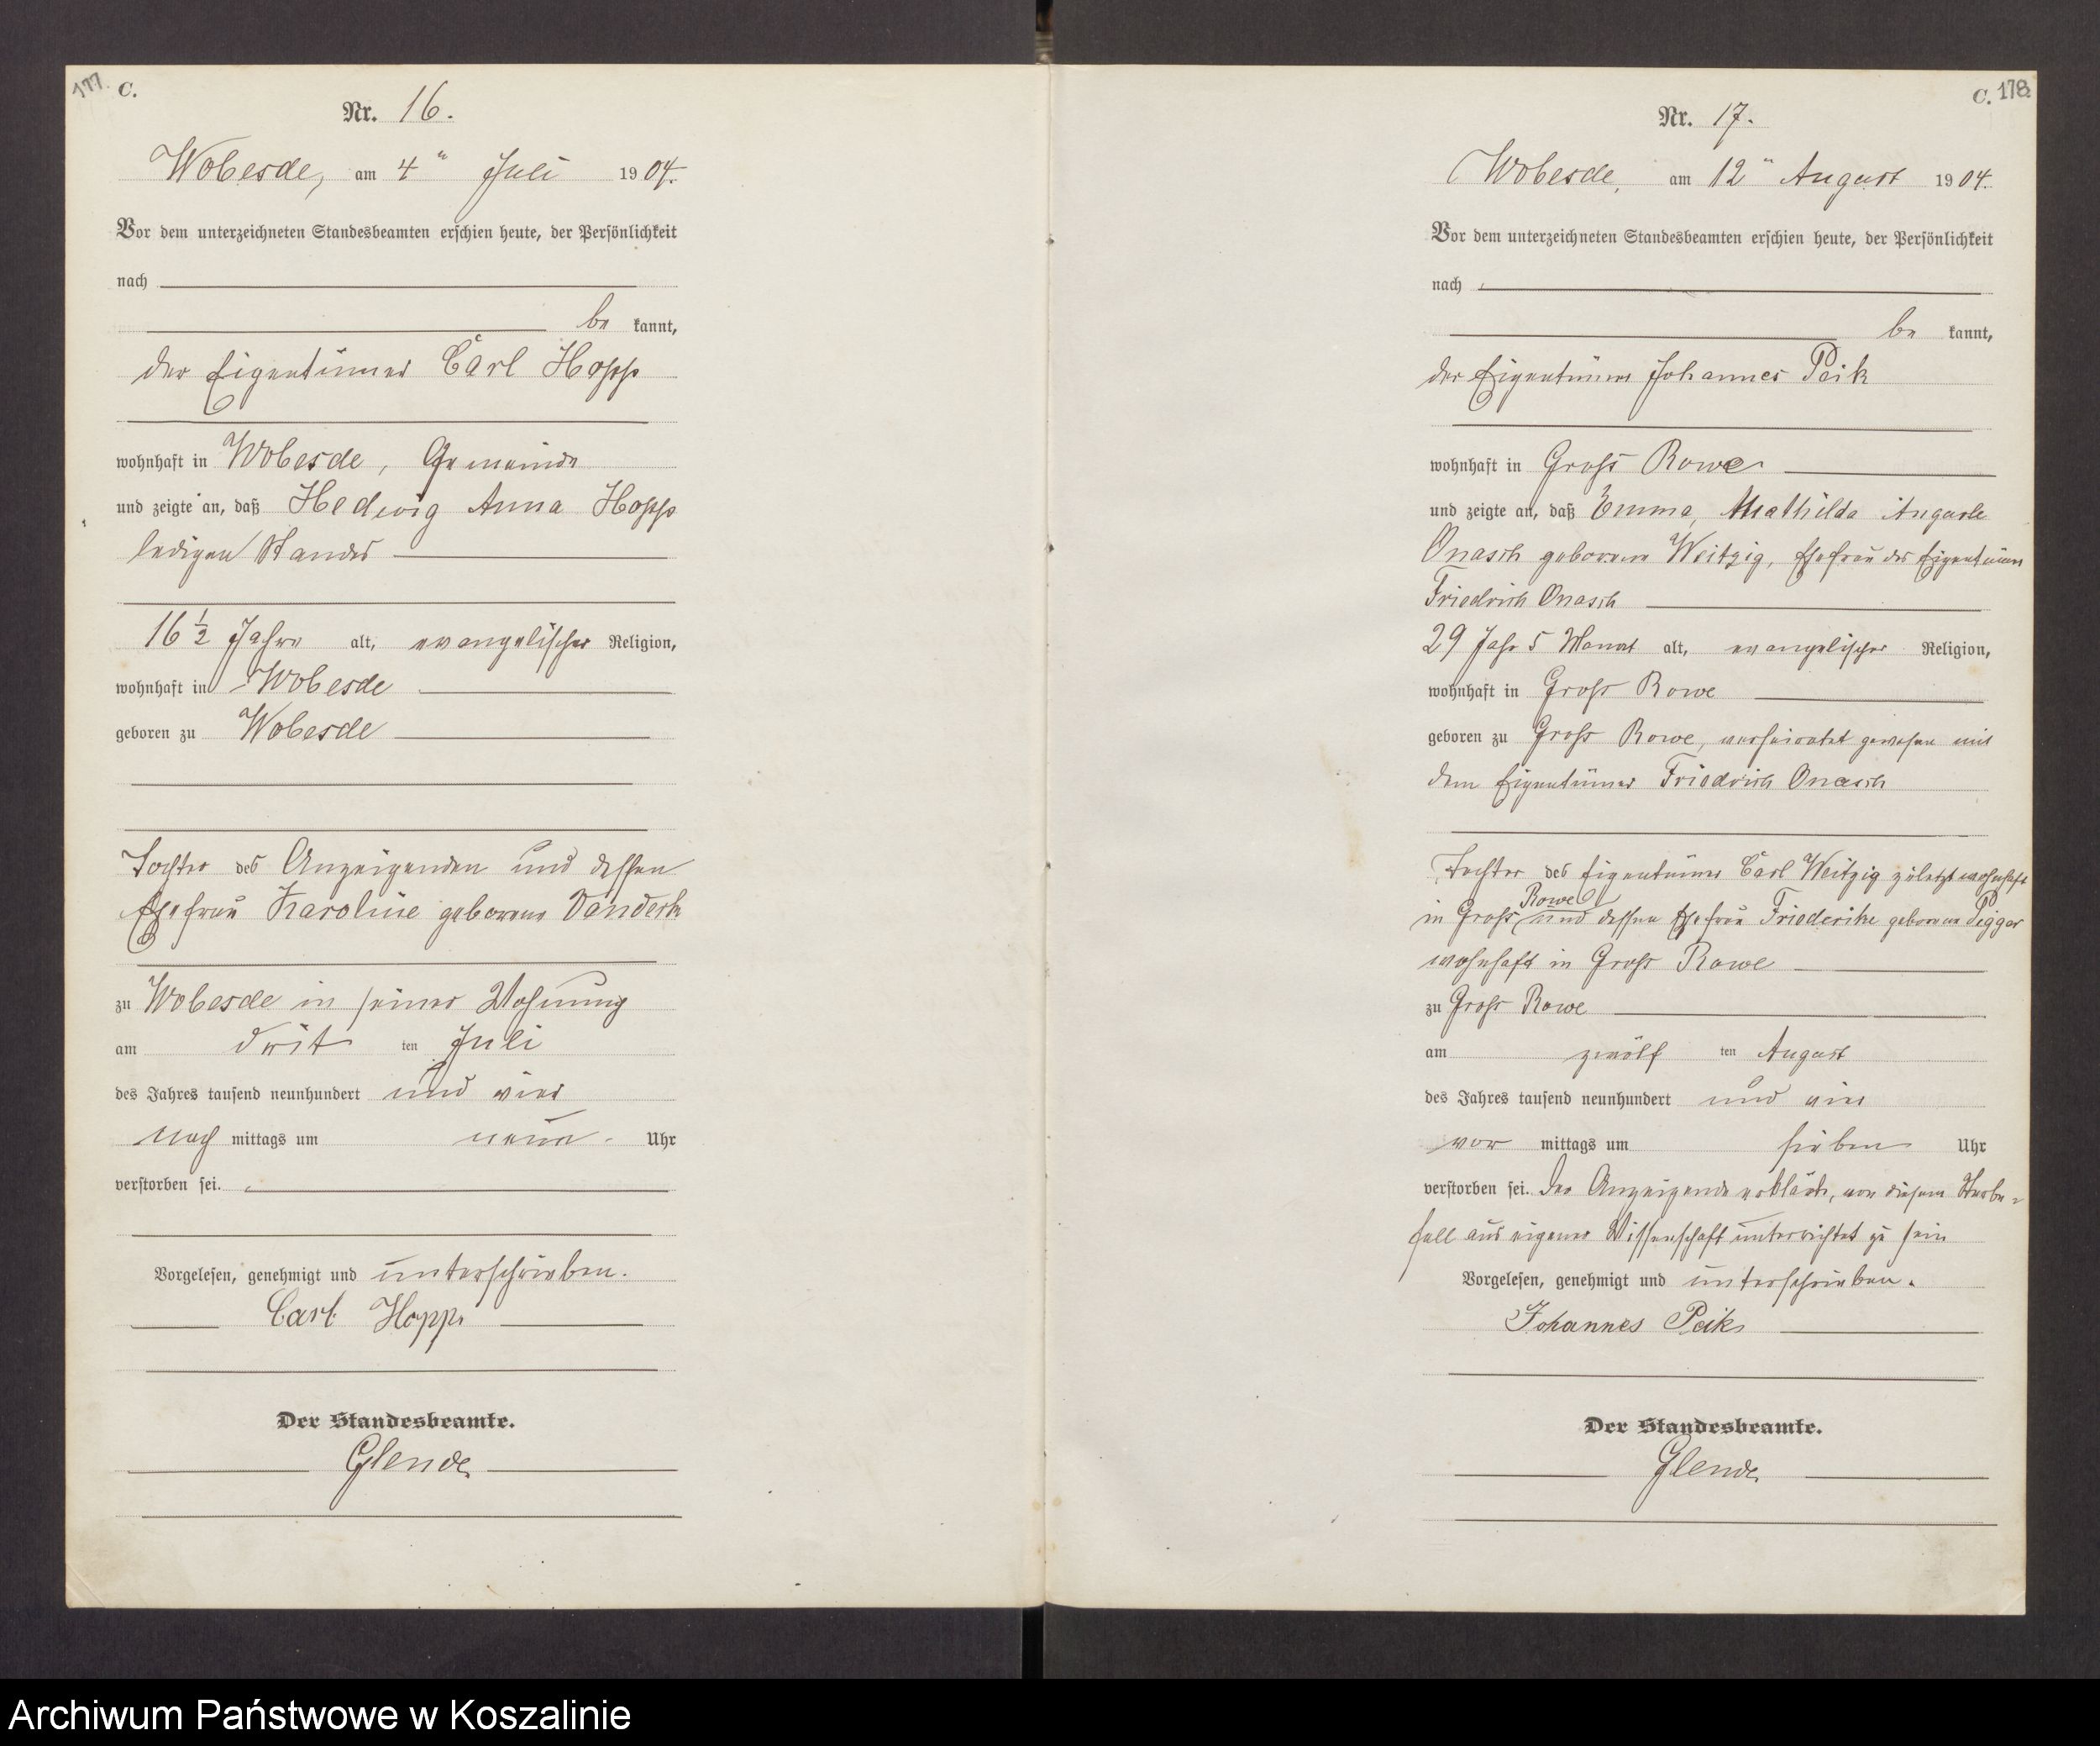 177. C.
Nr. 16.
Wobesde, am 4ten Juli 1904.
Vor dem unterzeichneten Standesbeamten erschien heute, der Persönlichkeit
nach
be kannt,
der Eigentümer Carl Hopp
wohnhaft in Wobesde, Gemeinde
und zeigte an, daß Hedwig Anna Hopp
ledigen Standes
16 1/2 Jahre alt, evangelischer Religion,
wohnhaft in Wobesde
geboren zu Wobesde
Tochter des Anzeigenden und dessen
Ehefrau Karoline geborene
zu Wobesde in seiner Wohnung
am dritten Juli
des Jahres tausend neunhundert und vier
nach mittags um neun Uhr
verstorben sei.
Vorgelesen, genehmigt und unterschrieben.
Carl Hopp
Der Standesbeamte.
Glende
C. 178.
Nr. 17.
Wobesde, am 12ten August 1904.
Vor dem unterzeichneten Standesbeamten erschien heute, der Persönlichkeit
nach
be kannt,
der Eigentümer Johannes Peik
wohnhaft in Groß Rowe
und zeigte an, daß Emma, Mathilda Auguste
Onasch geborene Weitzig, Ehefrau des Eigentümers
Friedrich Onasch
29 Jahr 5 Monat alt, evangelischer Religion,
wohnhaft in Groß Rowe
geboren zu Groß Rowe, verheiratet gewesen mit
dem Eigentümer Friedrich Onasch
Tochter des Eigentümer Carl Weitzig zuletzt wohnhaft
in Groß Rowe und dessen Ehefrau Friederike geborene
wohnhaft in Groß Rowe
zu Groß Rowe
am zwölf ten August
des Jahres tausend neunhundert und vier
vor mittags um sieben Uhr
verstorben sei. Der Anzeigende erklärte, von diesem Sterbe-
fall aus eigener Wissenschaft unterrichtet zu sein
Vorgelesen, genehmigt und unterschrieben.
Johannes Peik
Der Standesbeamte.
Glende
Archiwum Państwowe w Koszalinie